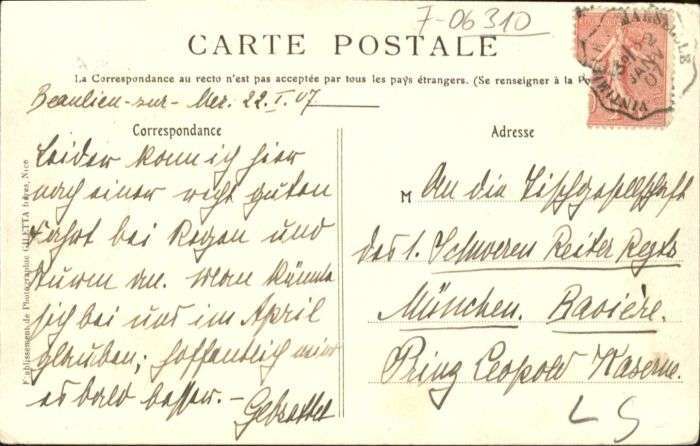 7-06310
CARTE POSTALE
La Correspondance au recto n'est pas acceptée par tous les pays étrangers. (Se renseigner à la Po
Beaulieu-sur-Mer. 22.I.07
Correspondance
Leider kam ich hier
nach einer recht guten
Fahrt bei Regen und
Sturm an. Man könnte
sich bei uns im April
glauben; hoffentlich wird
es bald besser. -
Adresse
M An die Tischgesellschaft
des 1. Schweren Reiter Regts
München. Bavière.
Prinz Leopold Kaserne.
LS
Établissement de Photographie GILETTA frères, Nice
MARSEILLE
VINTIMILLE